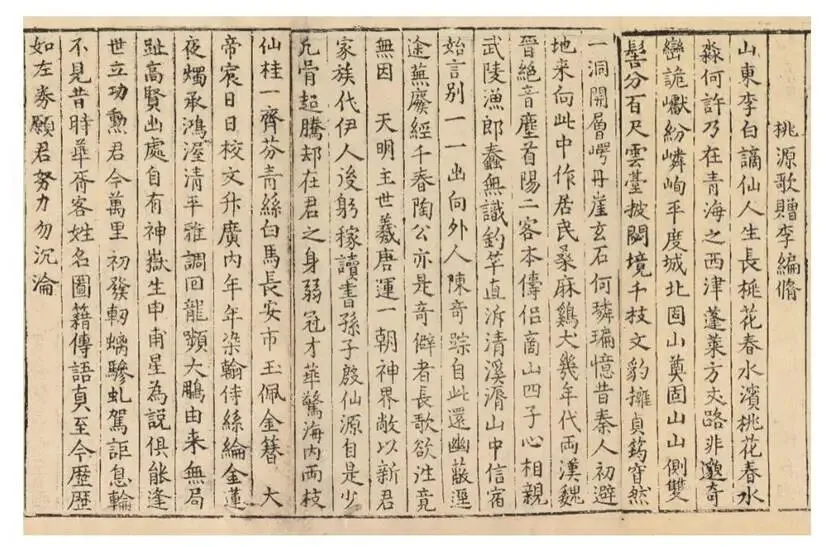 桃源歌贈李編脩
山東李白謫仙人生長桃花春水濱桃花春水
淼何許乃在青海之西津蓬萊方丈路非邈奇
巒詭巘紛嶙峋平度城北固山奠固山山側雙
髻分百尺雲臺披闕境千枝文豹擁貞筠窅然
一洞開層崿丹崖玄石何璘㻞憶昔秦人初避
地来向此中作居民桑麻鷄犬幾年代兩漢魏
晉絕音塵首陽二客本儔侶商山四子心相親
武陵漁郎蠢無識釣竿直泝清溪漘山中信宿
始言別一一出向外人陳奇踪自此還幽蔽逕
途蕪廢經千春陶公亦是奇僻者長歌欲往竟
無因 天明主世羲唐運一朝神界敞以新君
家族代伊人後躬稼讀書孫子殷仙源自是少
凡骨起騰却在君之身弱冠才華驚海内兩枝
仙桂一齊芬青絲白馬長安市玉佩金簪 大
帝宸日日校文升廣内年年染翰侍絲綸金蓮
夜燭承鴻渥清平雅調回龍大鵬由来無局
趾高賢出處自有神嶽生申甫星為説俱能逢
世立功勳君今萬里初發軔螭驂虬駕詎息輪
不見昔時華胥客姓名圖籍傳語真至今歷歷
如左券願君努力勿沉淪